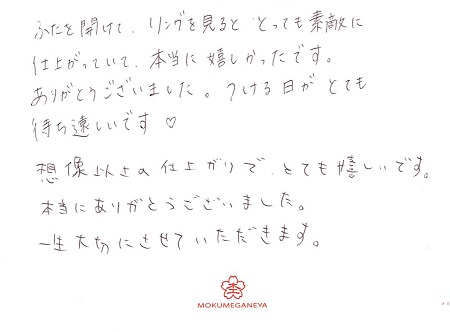 ふたを開けて、リングを見ると とっても素敵に
仕上がっていて、本当に嬉しかったです。
ありがとうございました。つける日が とても
待ち遠しいです♡
想像以上の仕上がりで、とても嬉しいです。
本当にありがとうございました。
一生大切にさせていただきます。
MOKUMEGANEYA